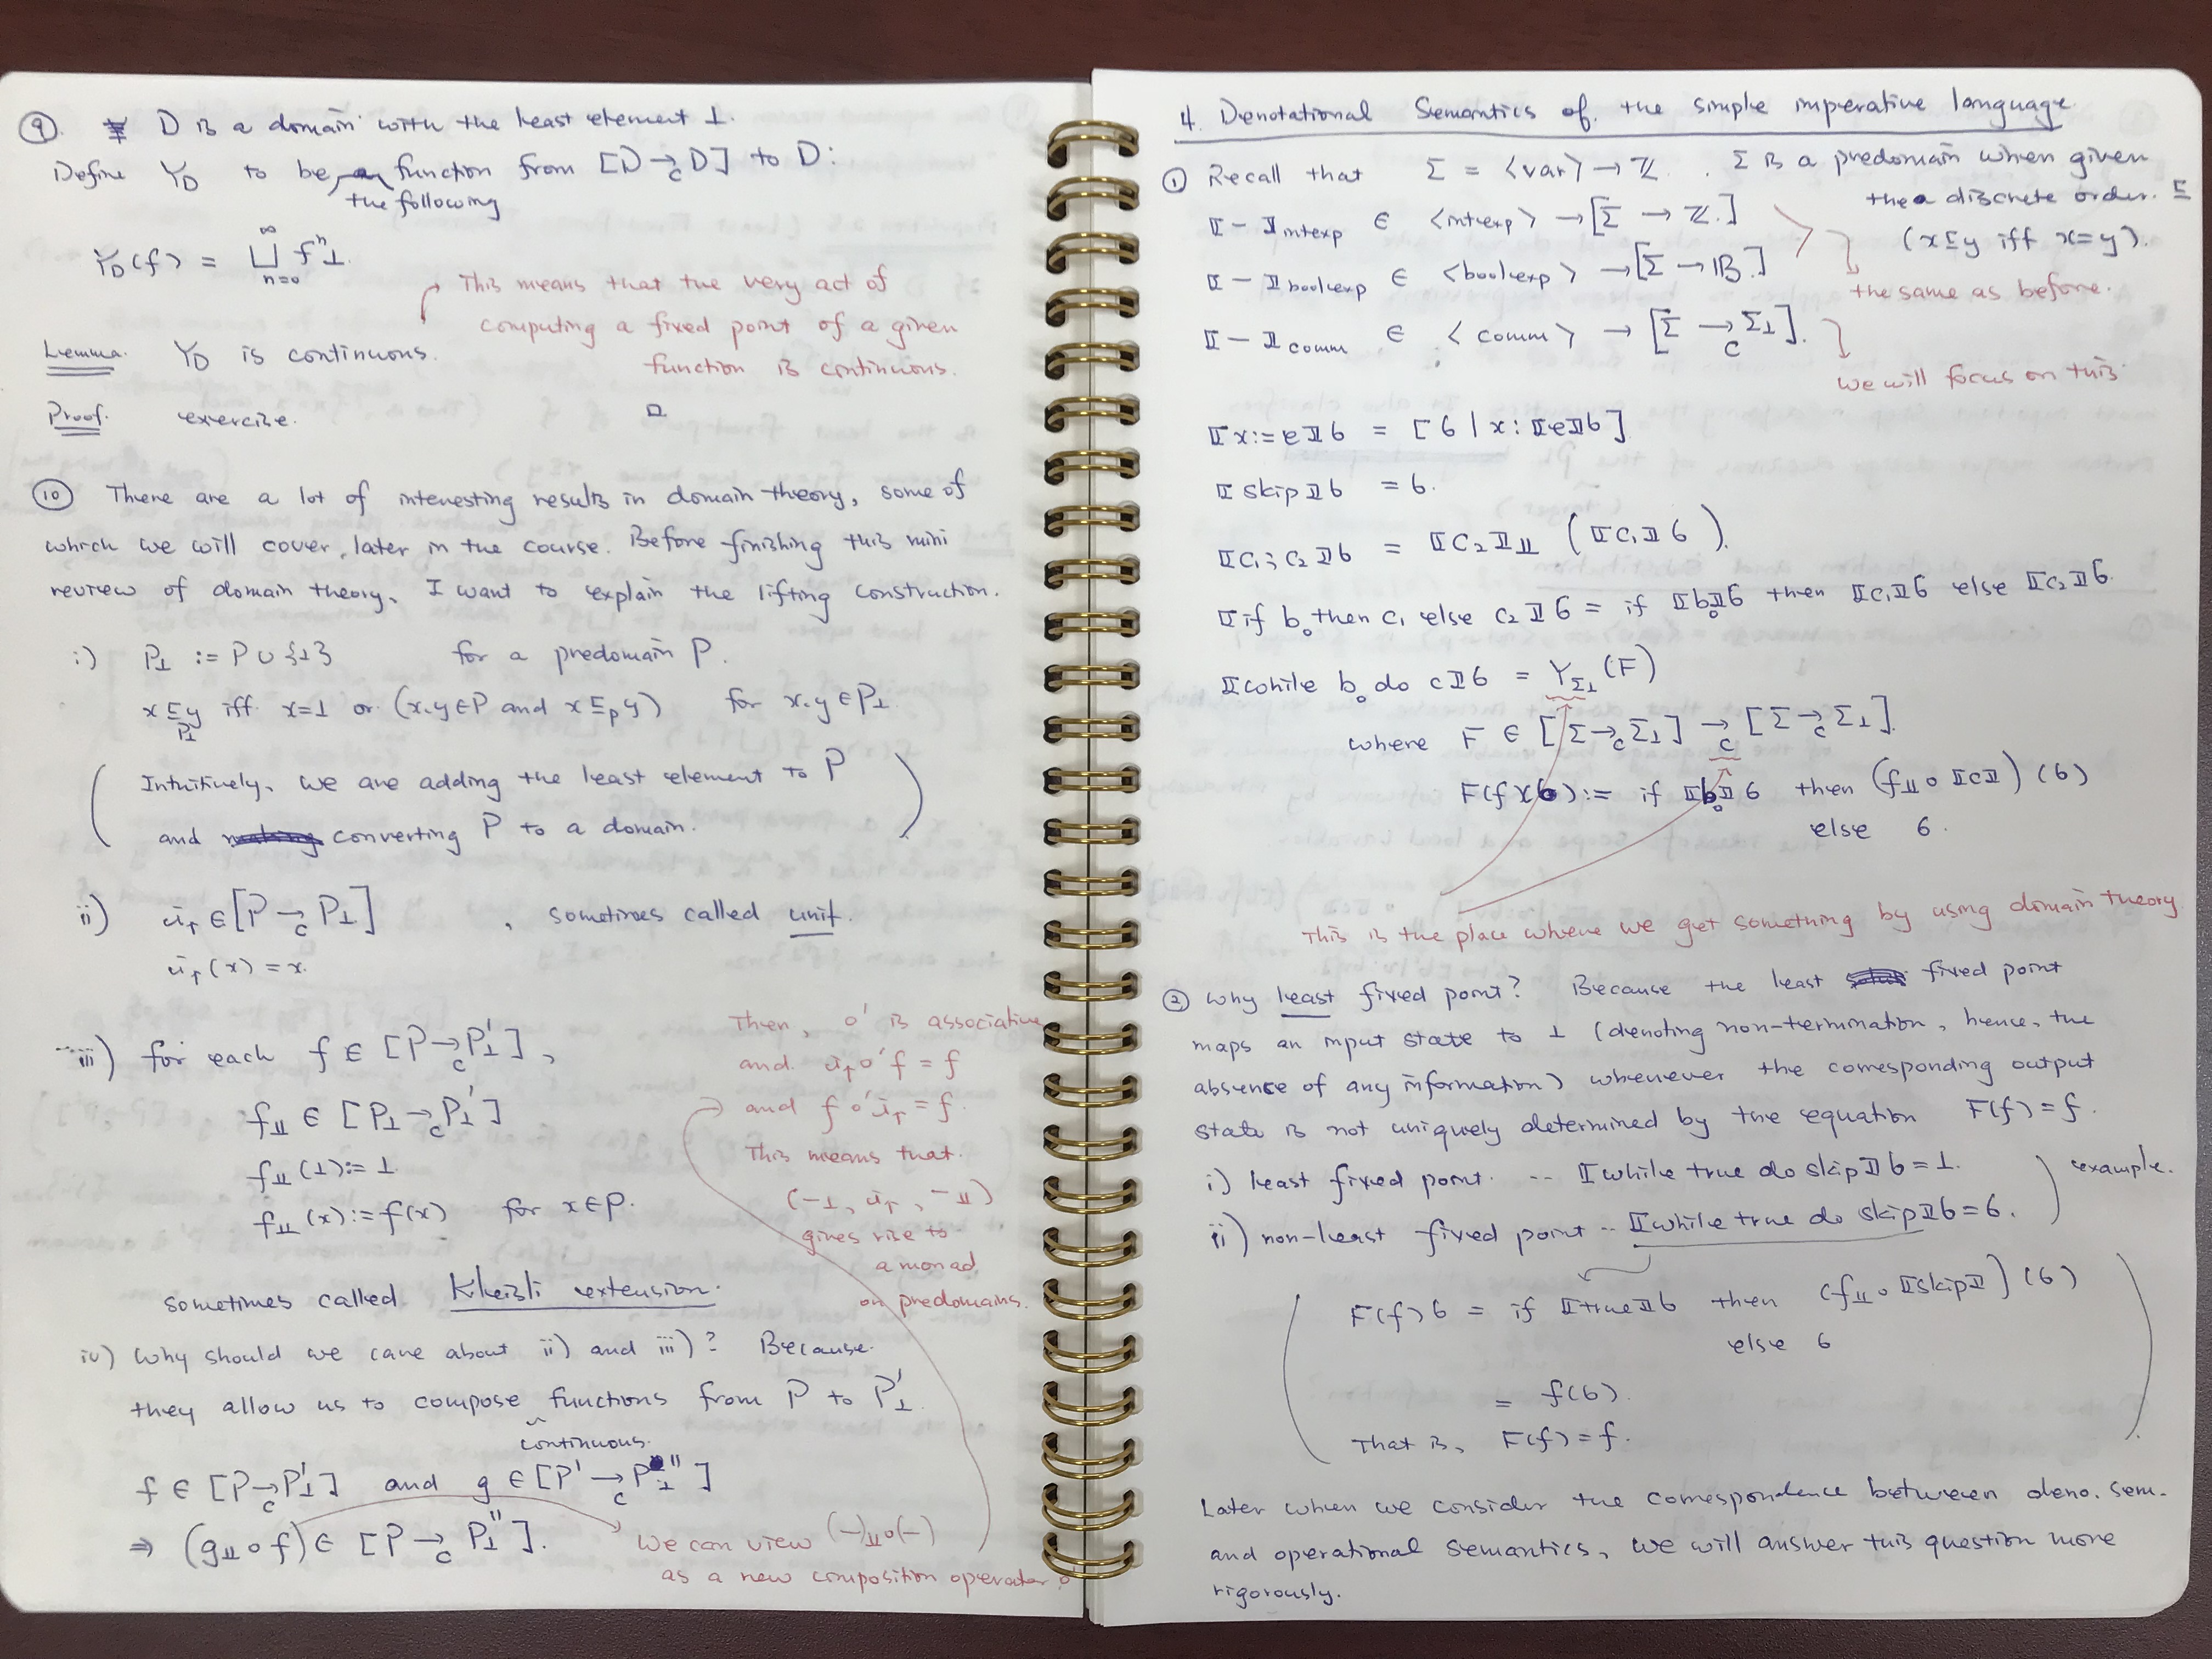 ⑨. D is a domain with the least element ⊥.
Define Y_D to be the following function from [D →_c D] to D:
Y_D(f) = ⊔_{n=0}^∞ f^n ⊥.
This means that the very act of
computing a fixed point of a given
function is continuous.
Lemma. Y_D is continuous.
Proof. exercise. □
⑩ There are a lot of interesting results in domain theory, some of
which we will cover, later in the course. Before finishing this mini
review of domain theory, I want to explain the lifting construction.
i) P_⊥ := P ∪ {⊥} for a predomain P.
x ⊑_{P_⊥} y iff x=⊥ or (x,y ∈ P and x ⊑_P y) for x,y ∈ P_⊥.
( Intuitively, we are adding the least element to P
and converting P to a domain. )
ii) ι_↑ ∈ [P →_c P_⊥] , sometimes called unit.
ι_↑(x) = x.
iii) for each f ∈ [P →_c P'_⊥],
f_⊥⊥ ∈ [P_⊥ →_c P'_⊥]
f_⊥⊥(⊥) := ⊥
f_⊥⊥(x) := f(x) for x ∈ P.
sometimes called Kleisli extension.
Then, o' is associative
and ι_↑ o' f = f
and f o' ι_↑ = f.
This means that
(-_⊥, ι_↑, -_⊥⊥)
gives rise to
a monad
on predomains.
iv) Why should we care about ii) and iii)? Because
they allow us to compose continuous functions from P to P'_⊥.
f ∈ [P →_c P'_⊥] and g ∈ [P' →_c P''_⊥]
⇒ (g_⊥⊥ ∘ f) ∈ [P →_c P''_⊥].
We can view (-)_⊥⊥ ∘ (-)
as a new composition operator o'
4. Denotational Semantics of the simple imperative language
① Recall that Σ = <var> → ℤ. Σ is a predomain when given
the discrete order. ⊑
(x ⊑ y iff x = y).
⟦-⟧_intexp ∈ <intexp> → [Σ → ℤ]
⟦-⟧_boolexp ∈ <boolexp> → [Σ → 𝔹]
the same as before.
⟦-⟧_comm ∈ <comm> → [Σ →_c Σ_⊥].
we will focus on this
⟦x := e⟧σ = [σ | x : ⟦e⟧σ]
⟦skip⟧σ = σ.
⟦c₁; c₂⟧σ = ⟦c₂⟧_⊥⊥ (⟦c₁⟧σ).
⟦if b₀ then c₁ else c₂⟧σ = if ⟦b₀⟧σ then ⟦c₁⟧σ else ⟦c₂⟧σ.
⟦while b₀ do c⟧σ = Y_{Σ_⊥}(F)
where F ∈ [Σ →_c Σ_⊥] →_c [Σ →_c Σ_⊥].
F(f)(σ) := if ⟦b₀⟧σ then (f_⊥⊥ ∘ ⟦c⟧)(σ)
else σ.
This is the place where we get something by using domain theory.
② Why least fixed point? Because the least fixed point
maps an input state to ⊥ (denoting non-termination, hence, the
absence of any information) whenever the corresponding output
state is not uniquely determined by the equation F(f) = f.
i) least fixed point. -- ⟦while true do skip⟧σ = ⊥.
ii) non-least fixed point -- ⟦while true do skip⟧σ = σ.
example.
F(f)σ = if ⟦true⟧σ then (f_⊥⊥ ∘ ⟦skip⟧)(σ)
else σ
= f(σ).
That is, F(f) = f.
Later when we consider the correspondence between deno. sem.
and operational semantics, we will answer this question more
rigorously.